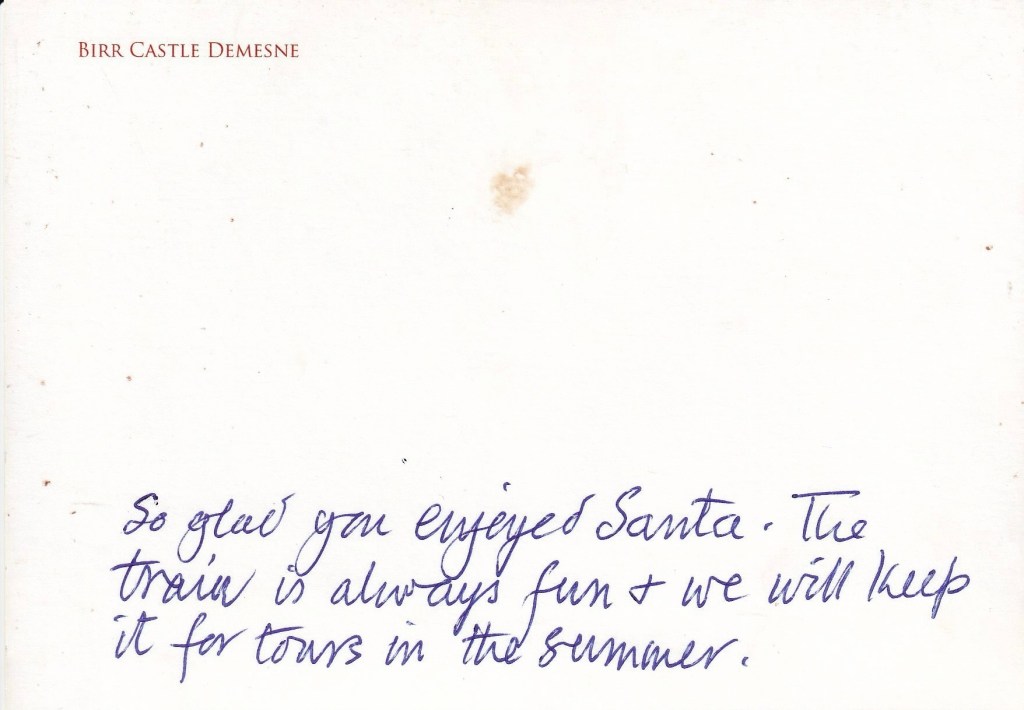 BIRR CASTLE DEMESNE
So glad you enjoyed Santa. The
train is always fun + we will keep
it for tours in the summer.